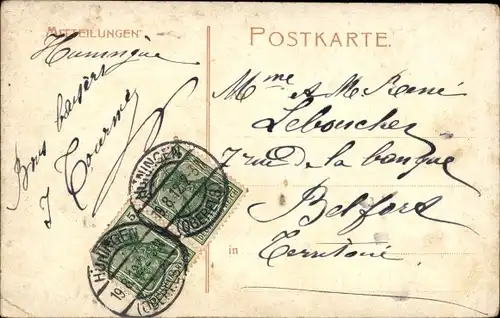 MITTEILUNGEN
POSTKARTE.
Huningue
Bons baisers
J
Mme & M René
Leboucher
7 rue de la banque
Belfort
in Territoire
HÜNINGEN
(OBERELS.)
HÜNINGEN